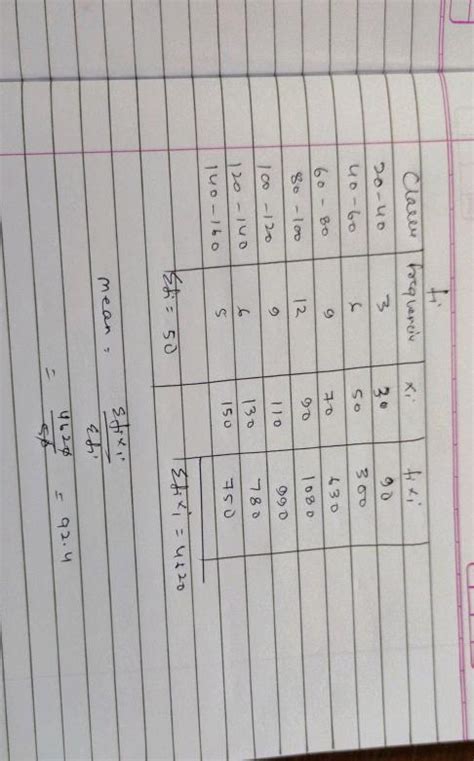 fi
Classes frequency xi fixi
20-40 3 30 90
40-60 6 50 300
60-80 9 70 630
80-100 12 90 1080
100-120 9 110 990
120-140 6 130 780
140-160 5 150 750
Σfi = 50 Σfixi = 4620
mean = Σfixi
Σfi
= 4620 = 92.4
50